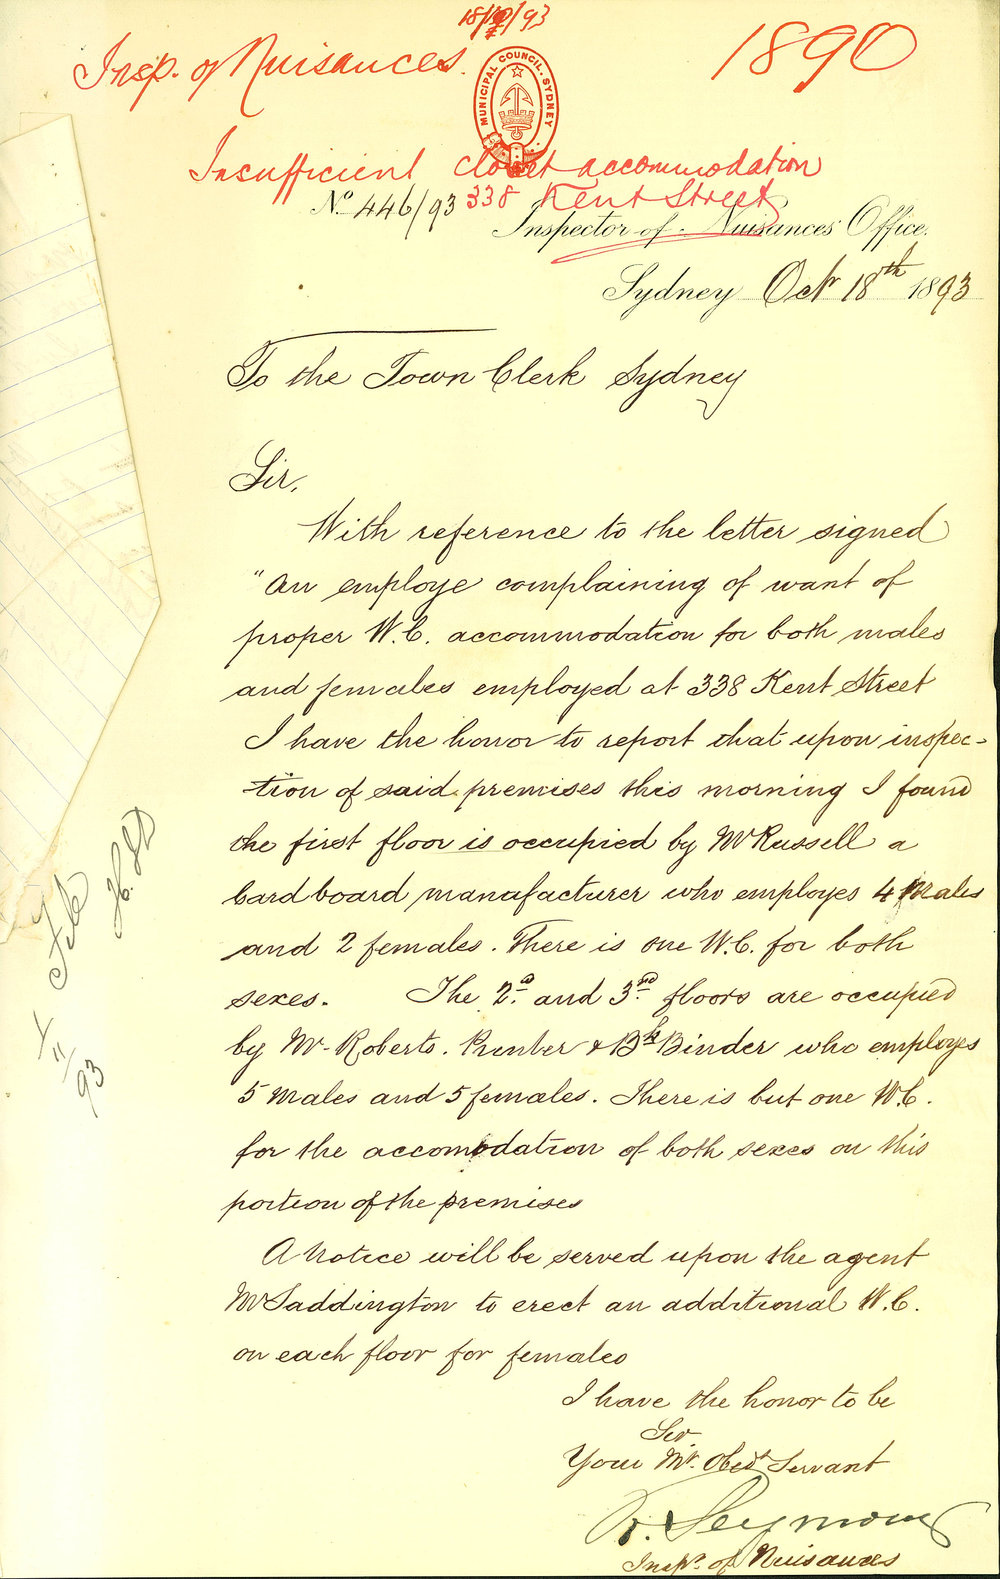 18/10/93
Insp. of Nuisances.
1890
MUNICIPAL COUNCIL. SYDNEY
Insufficient closet accommodation
338 Kent Street
No. 446/93
Inspector of Nuisances Office.
Sydney Octr 18th 1893
To the Town Clerk Sydney
Sir,
With reference to the letter signed
"An employe complaining of want of
proper W.C. accommodation for both males
and females employed at 338 Kent Street
I have the honor to report that upon inspec-
tion of said premises this morning I found
the first floor is occupied by Mr Russell a
Cardboard manufacturer who employes 4 Males
and 2 females. There is one W.C. for both
sexes. The 2nd and 3rd floors are occupied
by Mr Roberts. Printer & Bk Binder who employes
5 Males and 5 females. There is but one W.C.
for the accomodation of both sexes on this
portion of the premises
A Notice will be served upon the agent
Mr Saddington to erect an additional W.C.
on each floor for females
I have the honor to be
Sir
Your Mt. Obedt Servant
R. Seymour
Inspr. of Nuisances
File
11/93